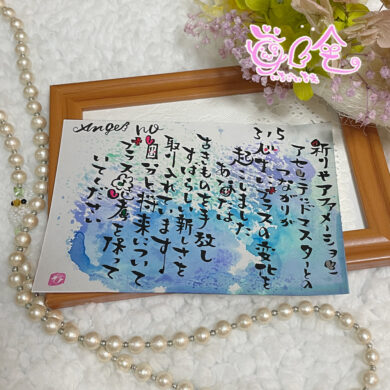 Angel no
祈りやアファメーションと
アセンテッドマスターとの
つながりが
人生にプラスの変化を
起こしました
あなたは
古きものを手放し
すばらしい新しさを
取り入れています
自分と将来について
プラス思考を保って
いてください